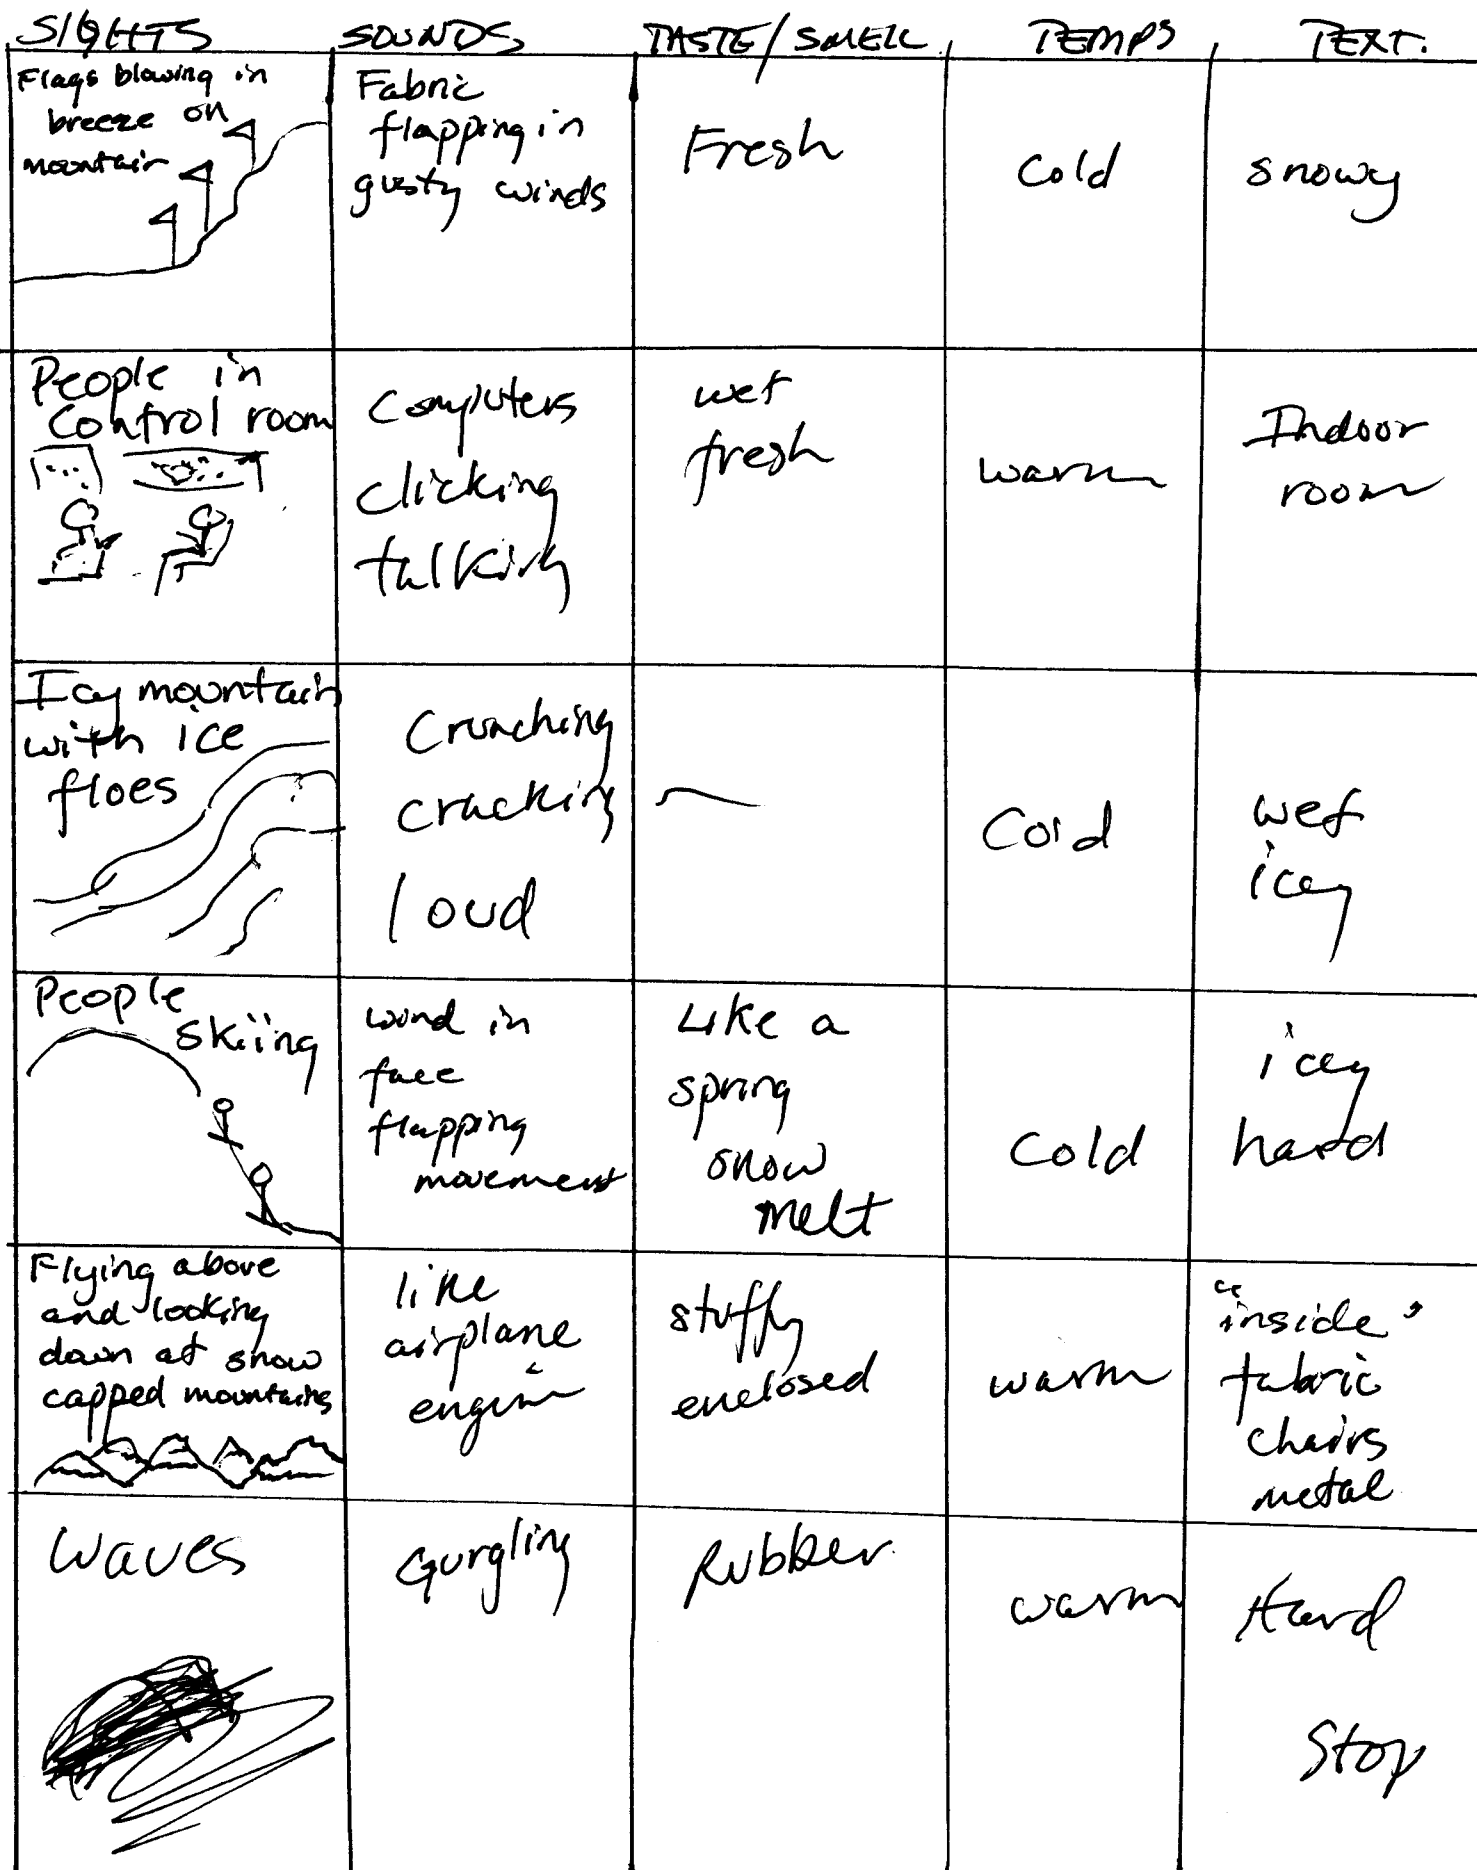 SIGHTS SOUNDS TASTE/SMELL TEMPS TEXT.
Flags blowing in
breeze on
mountain
Fabric
flapping in
gusty winds
Fresh
Cold
snowy
People in
Control room
Computers
clicking
talking
wet
fresh
warm
Indoor
room
Icy mountain
with ice
floes
Crunching
cracking
loud
Cold
wet
icey
People
skiing
wind in
face
flapping
movement
Like a
spring
snow
melt
Cold
icey
hard
Flying above
and looking
down at snow
capped mountains
like
airplane
engine
stuffy
enclosed
warm
"inside"
fabric
chairs
metal
Waves
Gurgling
Rubber
warm
Hard
Stop